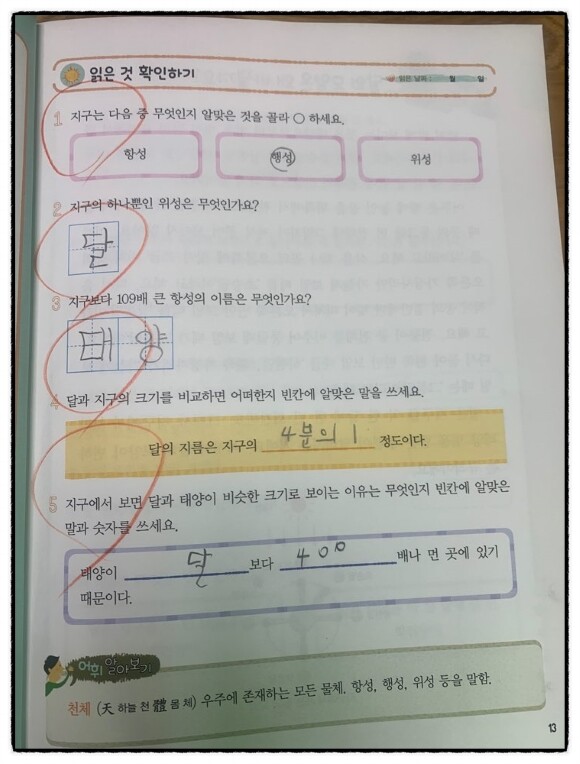 읽은 것 확인하기
읽은 날짜 : 월 일
1 지구는 다음 중 무엇인지 알맞은 것을 골라 ○ 하세요.
항성 행성 위성
2 지구의 하나뿐인 위성은 무엇인가요?
달
3 지구보다 109배 큰 항성의 이름은 무엇인가요?
태양
4 달과 지구의 크기를 비교하면 어떠한지 빈칸에 알맞은 말을 쓰세요.
달의 지름은 지구의 4분의 1 정도이다.
5 지구에서 보면 달과 태양이 비슷한 크기로 보이는 이유는 무엇인지 빈칸에 알맞은
말과 숫자를 쓰세요.
태양이 달 보다 400 배나 먼 곳에 있기
때문이다.
어휘 알아보기
천체 (天 하늘 천 體 몸 체) 우주에 존재하는 모든 물체. 항성, 행성, 위성 등을 말함.
13